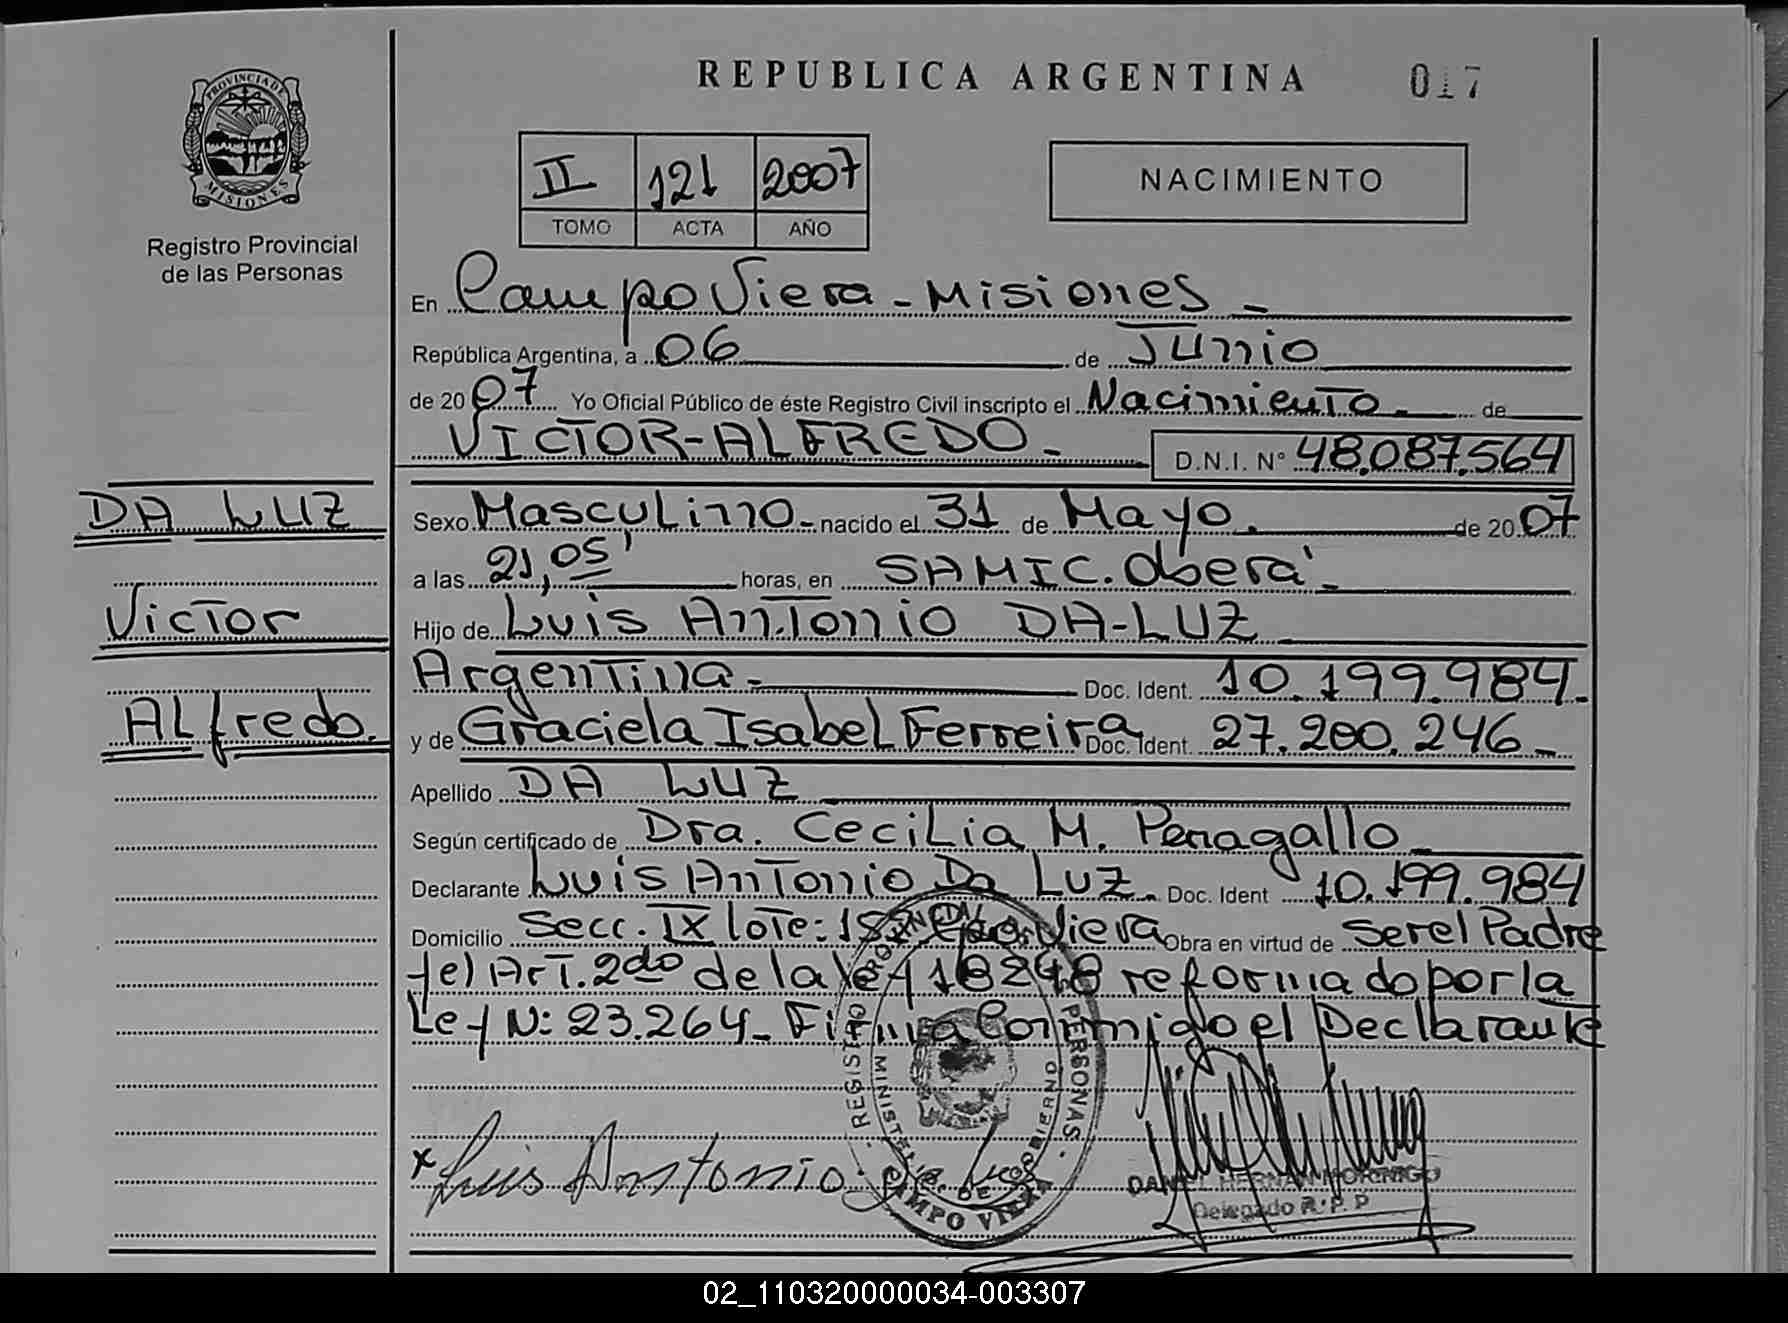 REPUBLICA ARGENTINA 017
PROVINCIA DE
MISIONES
Registro Provincial
de las Personas
II 121 2007
TOMO ACTA AÑO
NACIMIENTO
En Campo Viera - Misiones -
República Argentina, a 06 de Junio
de 2007 Yo Oficial Público de éste Registro Civil inscripto el Nacimiento - de
VICTOR-ALFREDO - D.N.I. N° 48.087.564
DA LUZ
Victor
ALfredo.
Sexo Masculino - nacido el 31 de Mayo. de 2007
a las 21,05' horas, en SAMIC. Oberá -
Hijo de Luis Antonio DA-LUZ
Argentina - Doc. Ident. 10.199.984.
y de Graciela Isabel Ferreira Doc. Ident. 27.200.246 -
Apellido DA LUZ
Según certificado de Dra. Cecilia M. Peragallo
Declarante Luis Antonio Da Luz - Doc. Ident 10.199.984
Domicilio Secc. IX lote: Cpo. Viera Obra en virtud de Ser el Padre
y el Art. 2do de la ley 18248 reformado por la
Ley N: 23.264 - Firma Conmigo el Declarante
REGISTRO PROVINCIAL PERSONAS
MINISTERIO DE GOBIERNO
CAMPO VIERA
x Luis Antonio
Delegado R.P.P
02_110320000034-003307